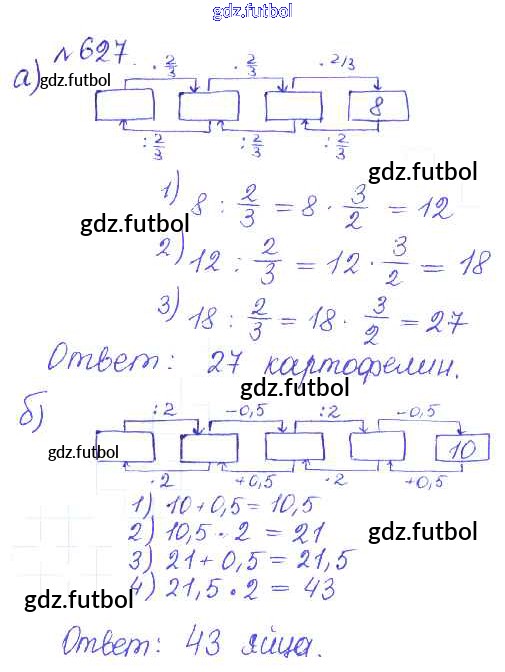 gdz.futbol
№627.
а) gdz.futbol
· 2/3 · 2/3 · 2/3
8
: 2/3 : 2/3 : 2/3
gdz.futbol
1) 8 : 2/3 = 8 · 3/2 = 12
gdz.futbol
2) 12 : 2/3 = 12 · 3/2 = 18
3) 18 : 2/3 = 18 · 3/2 = 27
Ответ: 27 картофелин.
gdz.futbol
б)
:2 -0,5 :2 -0,5
gdz.futbol 10
·2 +0,5 ·2 +0,5
1) 10+0,5=10,5
2) 10,5·2=21
gdz.futbol
3) 21+0,5=21,5
4) 21,5·2=43
gdz.futbol
Ответ: 43 яйца.
gdz.futbol